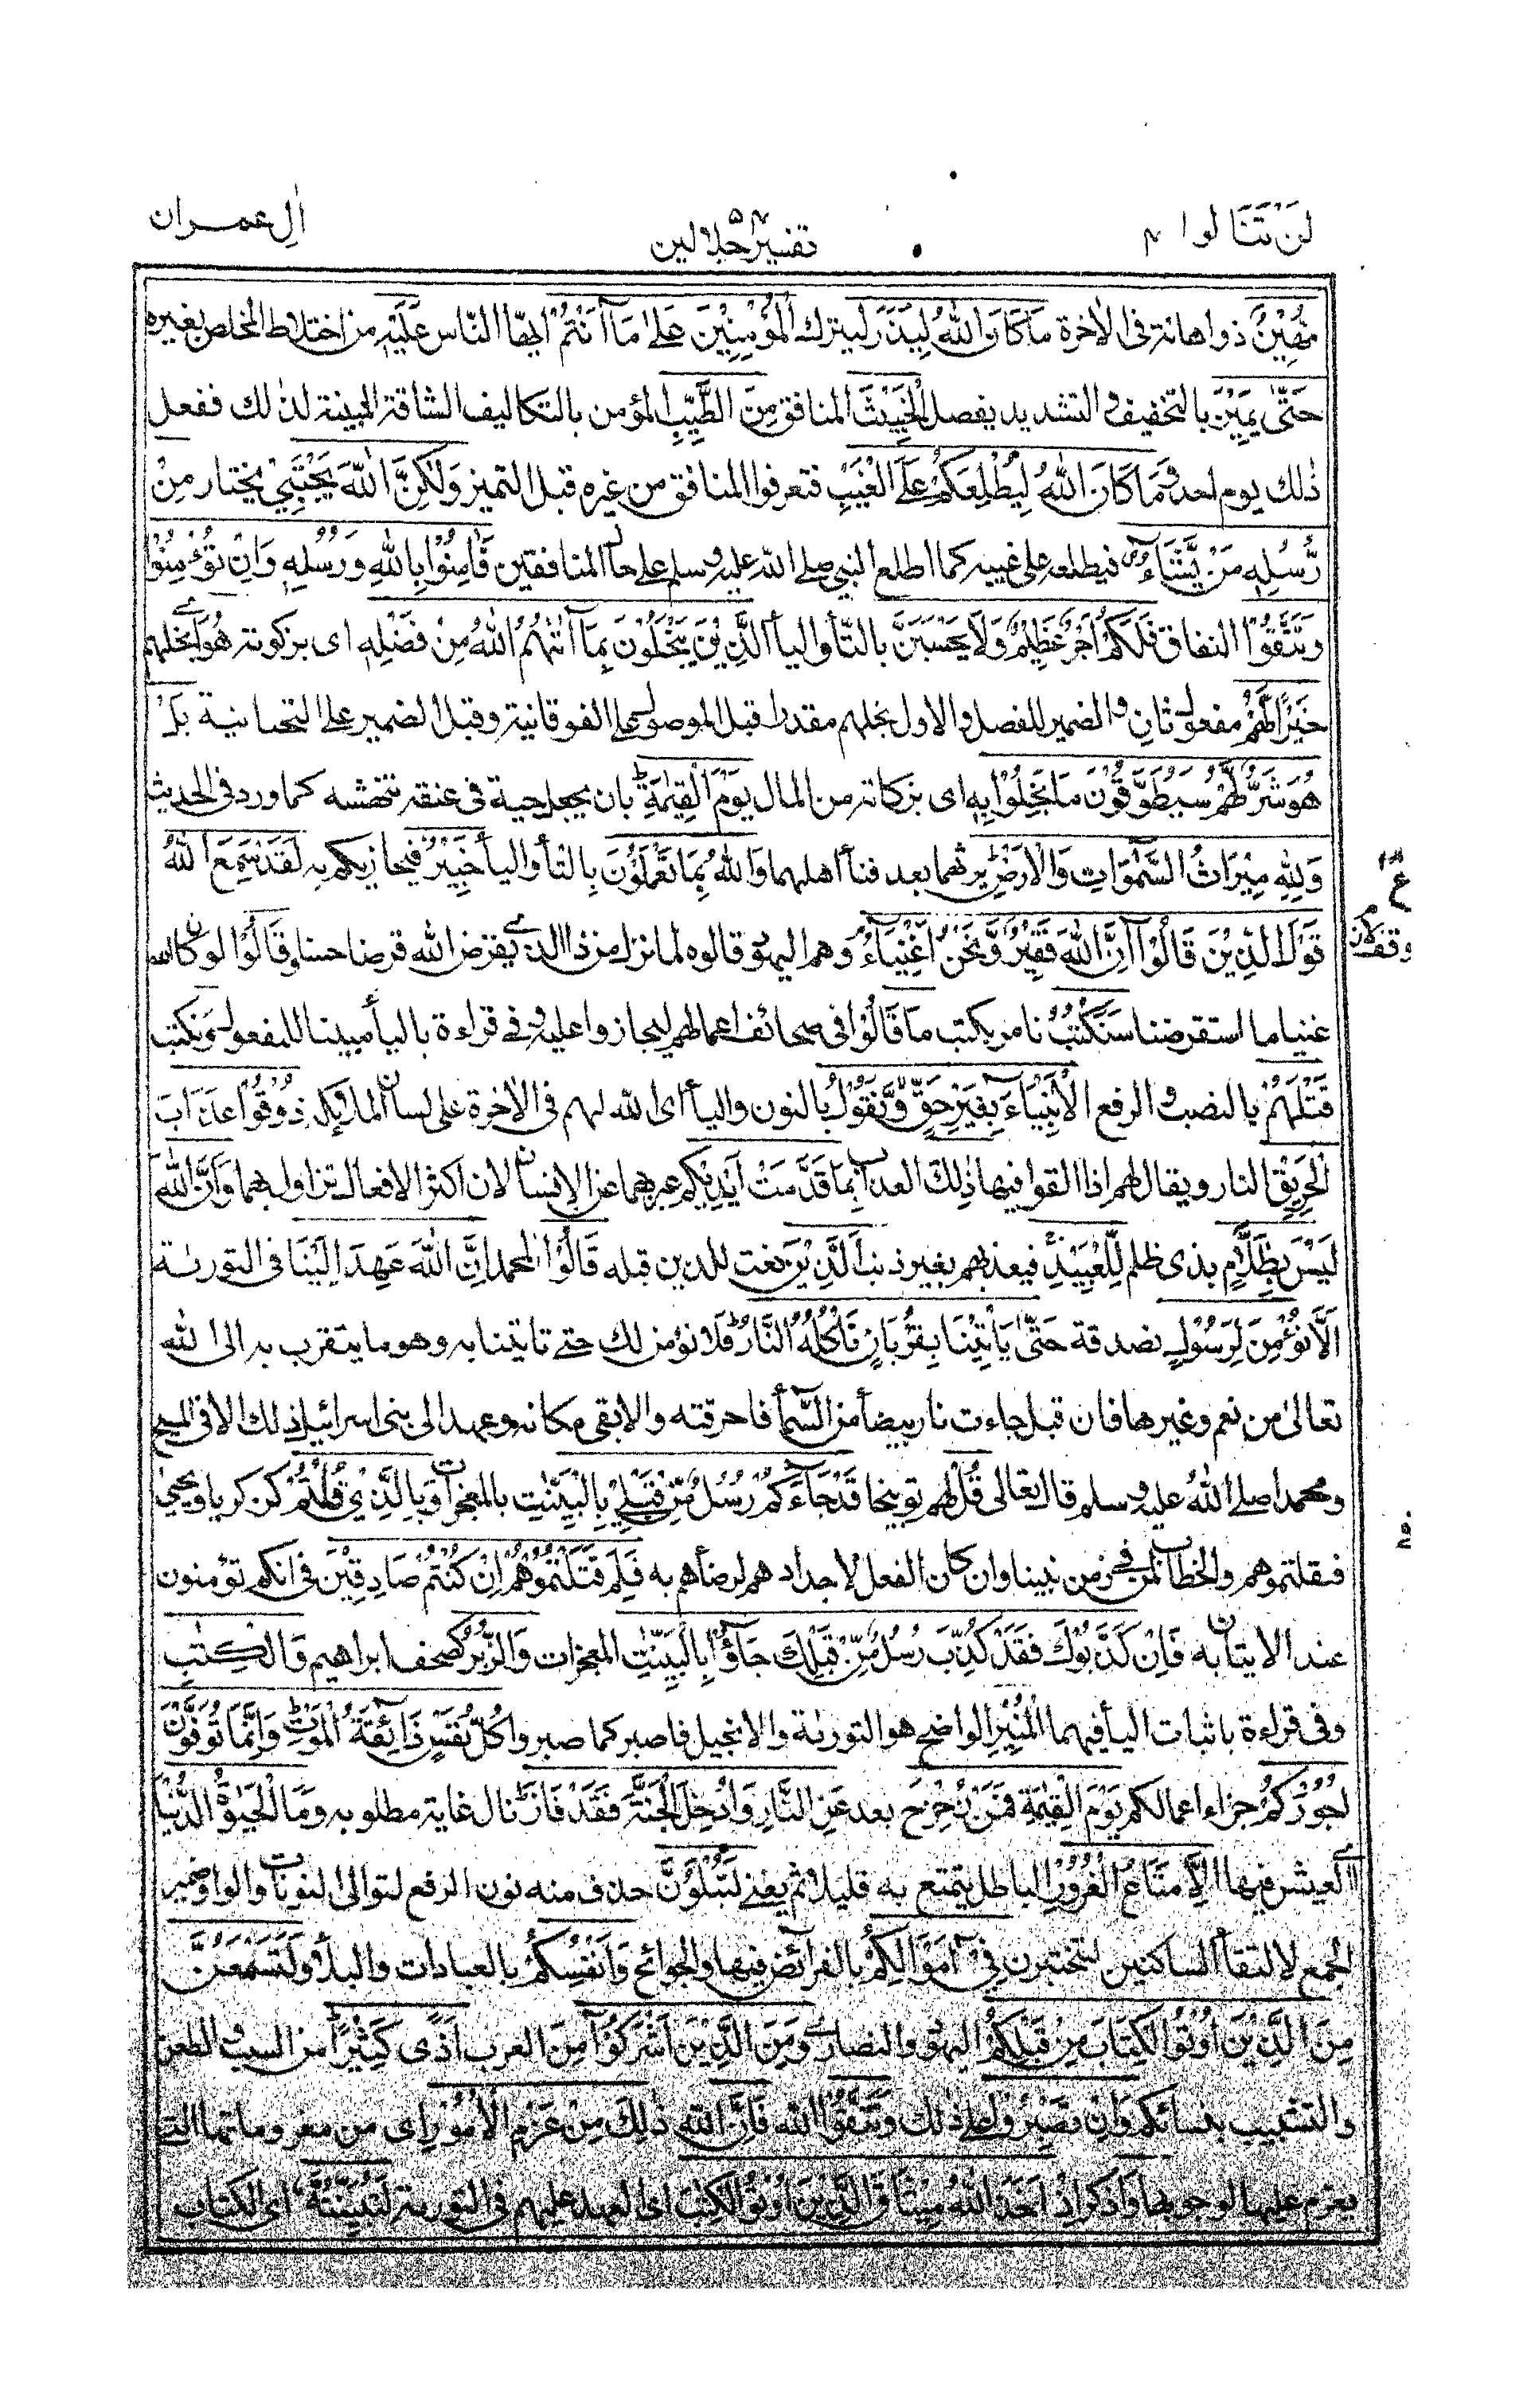 لن تنالوا ٤
تفسير جلالين
اٰل عمران
مُّهِيْنٌ ذو اهانة فى الاٰخرة مَا كَانَ اللّٰهُ لِيَذَرَ ليترك الْمُؤْمِنِيْنَ عَلٰى مَا اَنْتُمْ ايها الناس عَلَيْهِ من اختلاط المخلص بغيره
حَتّٰى يَمِيْزَ بالتخفيف والتشديد يفصل الْخَبِيْثَ المنافق مِنَ الطَّيِّبِ المؤمن بالتكاليف الشاقة المبينة لذلك ففعل
ذٰلك يوم احد وَمَا كَانَ اللّٰهُ لِيُطْلِعَكُمْ عَلَى الْغَيْبِ فتعرفوا المنافق من غيره قبل التميز وَلٰكِنَّ اللّٰهَ يَجْتَبِيْ يختار مِنْ
رُّسُلِهٖ مَنْ يَّشَآءُ فيطلعه على غيبه كما اطلع النبي صلے اللّٰه عليه وسلم على حال المنافقين فَاٰمِنُوْا بِاللّٰهِ وَرُسُلِهٖ وَاِنْ تُؤْمِنُوْا
وَتَتَّقُوْا النفاق فَلَكُمْ اَجْرٌ عَظِيْمٌ وَلَا يَحْسَبَنَّ بالتأ واليأ الَّذِيْنَ يَبْخَلُوْنَ بِمَآ اٰتٰهُمُ اللّٰهُ مِنْ فَضْلِهٖ اى بزكوته هُوَ اى بخلهم
خَيْرًا لَّهُمْ مفعول ثان والضمير للفصل والاول بخلهم مقدرا قبل الموصول على الفوقانية وقبل الضمير على التحتانية بَلْ
هُوَ شَرٌّ لَّهُمْ سَيُطَوَّقُوْنَ مَا بَخِلُوْا بِهٖ اى بزكاته من المال يَوْمَ الْقِيٰمَةِ بان يجعل حية فى عنقه تنهشه كما ورد فى الحديث
وَلِلّٰهِ مِيْرَاثُ السَّمٰوٰتِ وَالْاَرْضِ يرثهما بعد فنأ اهلهما وَاللّٰهُ بِمَا تَعْمَلُوْنَ بالتأ واليأ خَبِيْرٌ فيجازيكم به لَقَدْ سَمِعَ اللّٰهُ
قَوْلَ الَّذِيْنَ قَالُوْآ اِنَّ اللّٰهَ فَقِيْرٌ وَّنَحْنُ اَغْنِيَآءُ وهم اليهود قالوه لما نزل من ذا الذى يقرض اللّٰه قرضا حسنا وقَالُوا لو كان اللّٰه
غنيا ما استقرضنا سَنَكْتُبُ نامر بكتب مَا قَالُوْا فى صحائف اعمالهم ليجازوا عليه وفے قراءة باليأ مبينا للمفعول وَنكتب
قَتْلَهُمْ بالنصب والرفع الْاَنْبِيَآءَ بِغَيْرِ حَقٍّ وَّنَقُوْلُ بالنون واليأ اى اللّٰه لهم فى الاٰخرة على لسان الملٰئكة ذُوْقُوْا عَذَابَ
الْحَرِيْقِ النار ويقال لهم اذا القوا فيها ذٰلِكَ العذاب بِمَا قَدَّمَتْ اَيْدِيْكُمْ عبر بهما عن الانسان لان اكثر الافعال تزاول بهما وَاَنَّ اللّٰهَ
لَيْسَ بِظَلَّامٍ بذى ظلم لِّلْعَبِيْدِ فيعذبهم بغير ذنب اَلَّذِيْنَ نعت للذين قبله قَالُوْا لمحمد اِنَّ اللّٰهَ عَهِدَ اِلَيْنَا فى التورٰىة
اَلَّا نُؤْمِنَ لِرَسُوْلٍ نصدقه حَتّٰى يَاْتِيَنَا بِقُرْبَانٍ تَاْكُلُهُ النَّارُ فلا نؤمن لك حتے تاتينا به وهو ما يتقرب به الى اللّٰه
تعالىٰ من نعم وغيرها فان قبل جاءت نار بيضأ من السمأ فاحرقته والا بقى مكانه وعهد الى بنى اسرائيل ذلك الا فى المسيح
ومحمد صلے اللّٰه عليه وسلم قال تعالى قُلْ لهم توبيخا قَدْ جَآءَكُمْ رُسُلٌ مِّنْ قَبْلِيْ بِالْبَيِّنٰتِ بالمعجزات وَبِالَّذِيْ قُلْتُمْ كزكريا ويحيىٰ
فقتلتموهم والخطاب لمن فى زمن نبينا وان كان الفعل لاجدادهم لرضأهم به فَلِمَ قَتَلْتُمُوْهُمْ اِنْ كُنْتُمْ صَادِقِيْنَ فى انكم تؤمنون
عند الايتان به فَاِنْ كَذَّبُوْكَ فَقَدْ كُذِّبَ رُسُلٌ مِّنْ قَبْلِكَ جَآؤُا بِالْبَيِّنٰتِ المعجزات وَالزُّبُرِ كصحف ابراهيم وَالْكِتٰبِ
وفى قراءة باثبات اليأ فيهما الْمُنِيْرِ الواضح هو التورٰىة والانجيل فاصبر كما صبروا كُلُّ نَفْسٍ ذَآئِقَةُ الْمَوْتِ وَاِنَّمَا تُوَفَّوْنَ
اُجُوْرَكُمْ جزاء اعمالكم يَوْمَ الْقِيٰمَةِ فَمَنْ زُحْزِحَ بعد عَنِ النَّارِ وَاُدْخِلَ الْجَنَّةَ فَقَدْ فَازَ نال غاية مطلوبه وَمَا الْحَيٰوةُ الدُّنْيَا
اى العيش فيها اِلَّا مَتَاعُ الْغُرُوْرِ الباطل يتمتع به قليلا ثم يفنے لَتُبْلَوُنَّ حذف منه نون الرفع لتوالى النونات والواو ضمير
الجمع لالتقأ الساكنين لتختبرن فِيْٓ اَمْوَالِكُمْ بالفرائض فيها والجوائح وَاَنْفُسِكُمْ بالعبادات والبلأ وَلَتَسْمَعُنَّ
مِنَ الَّذِيْنَ اُوْتُوا الْكِتَابَ مِنْ قَبْلِكُمْ اليهود والنصارى وَمِنَ الَّذِيْنَ اَشْرَكُوْآ مِنَ العرب اَذًى كَثِيْرًا من السب والطعن
والتشبيب بنسائكم وَاِنْ تَصْبِرُوْا على ذلك وَتَتَّقُوا اللّٰه فَاِنَّ ذٰلِكَ مِنْ عَزْمِ الْاُمُوْرِ اى من معزوماتها التى
يعزم عليها لوجوبها وَاذكر اِذْ اَخَذَ اللّٰهُ مِيْثَاقَ الَّذِيْنَ اُوْتُوا الْكِتٰبَ اى العهد عليهم فى التورٰىة لَتُبَيِّنُنَّهٗ اى الكتاب